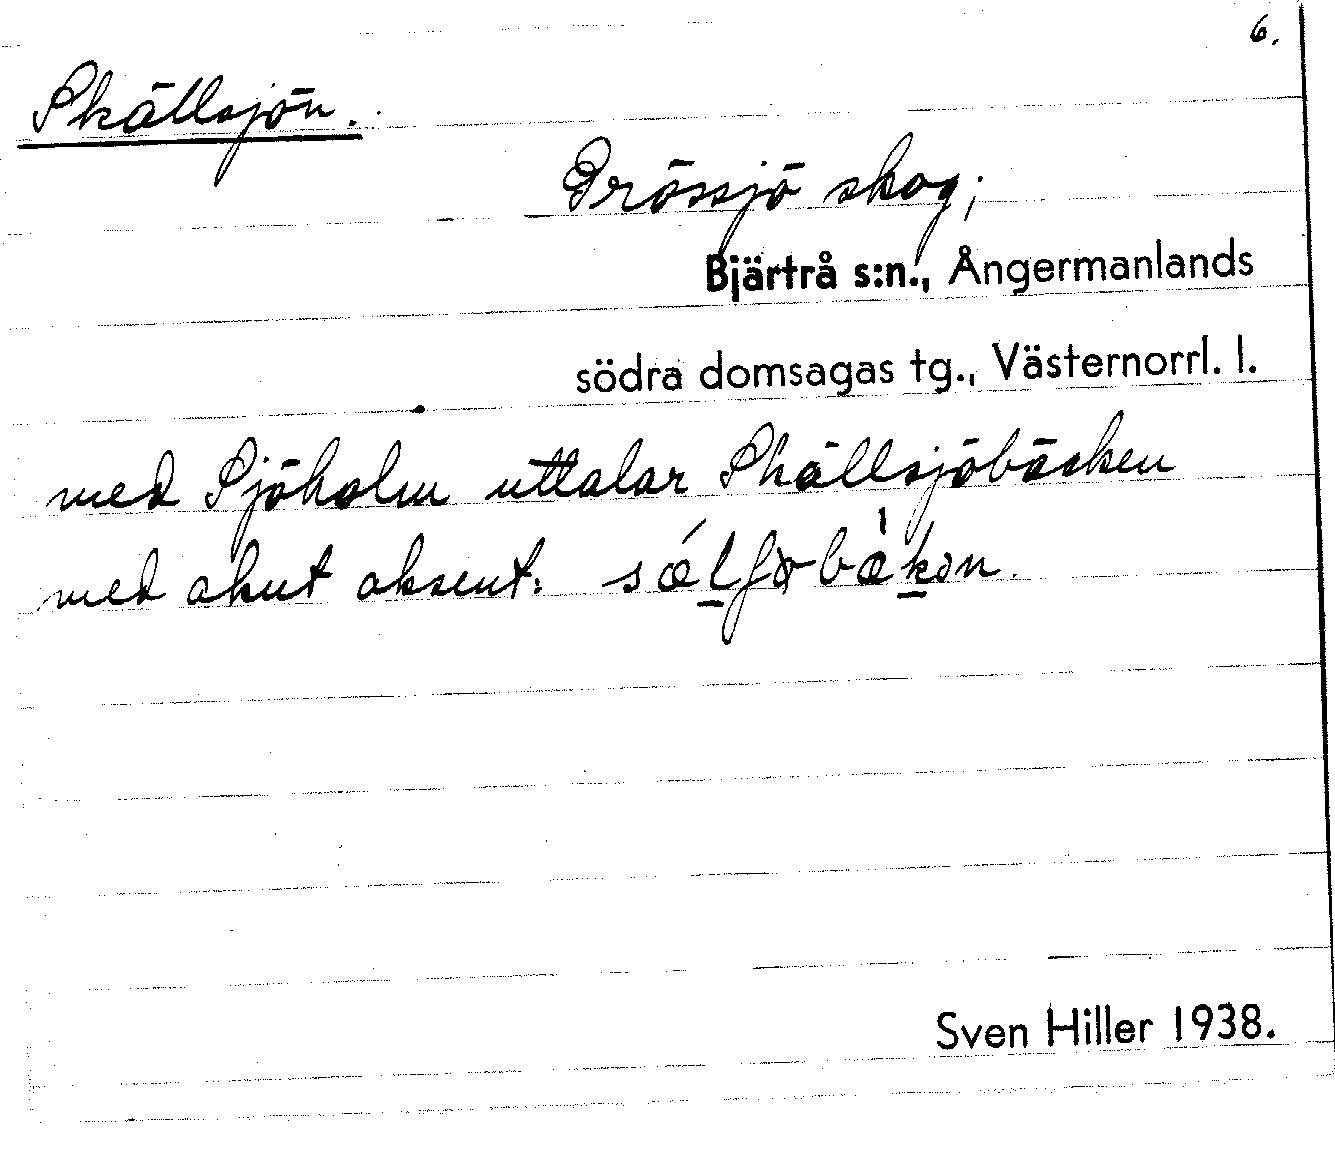 6.
Skällsjön.
Drössjö skog;
Bjärtrå s:n., Ångermanlands
södra domsagas tg., Västernorrl. l.
med Sjöholm uttalar Skällsjöbäcken
med akut aksent:
Sven Hiller 1938.